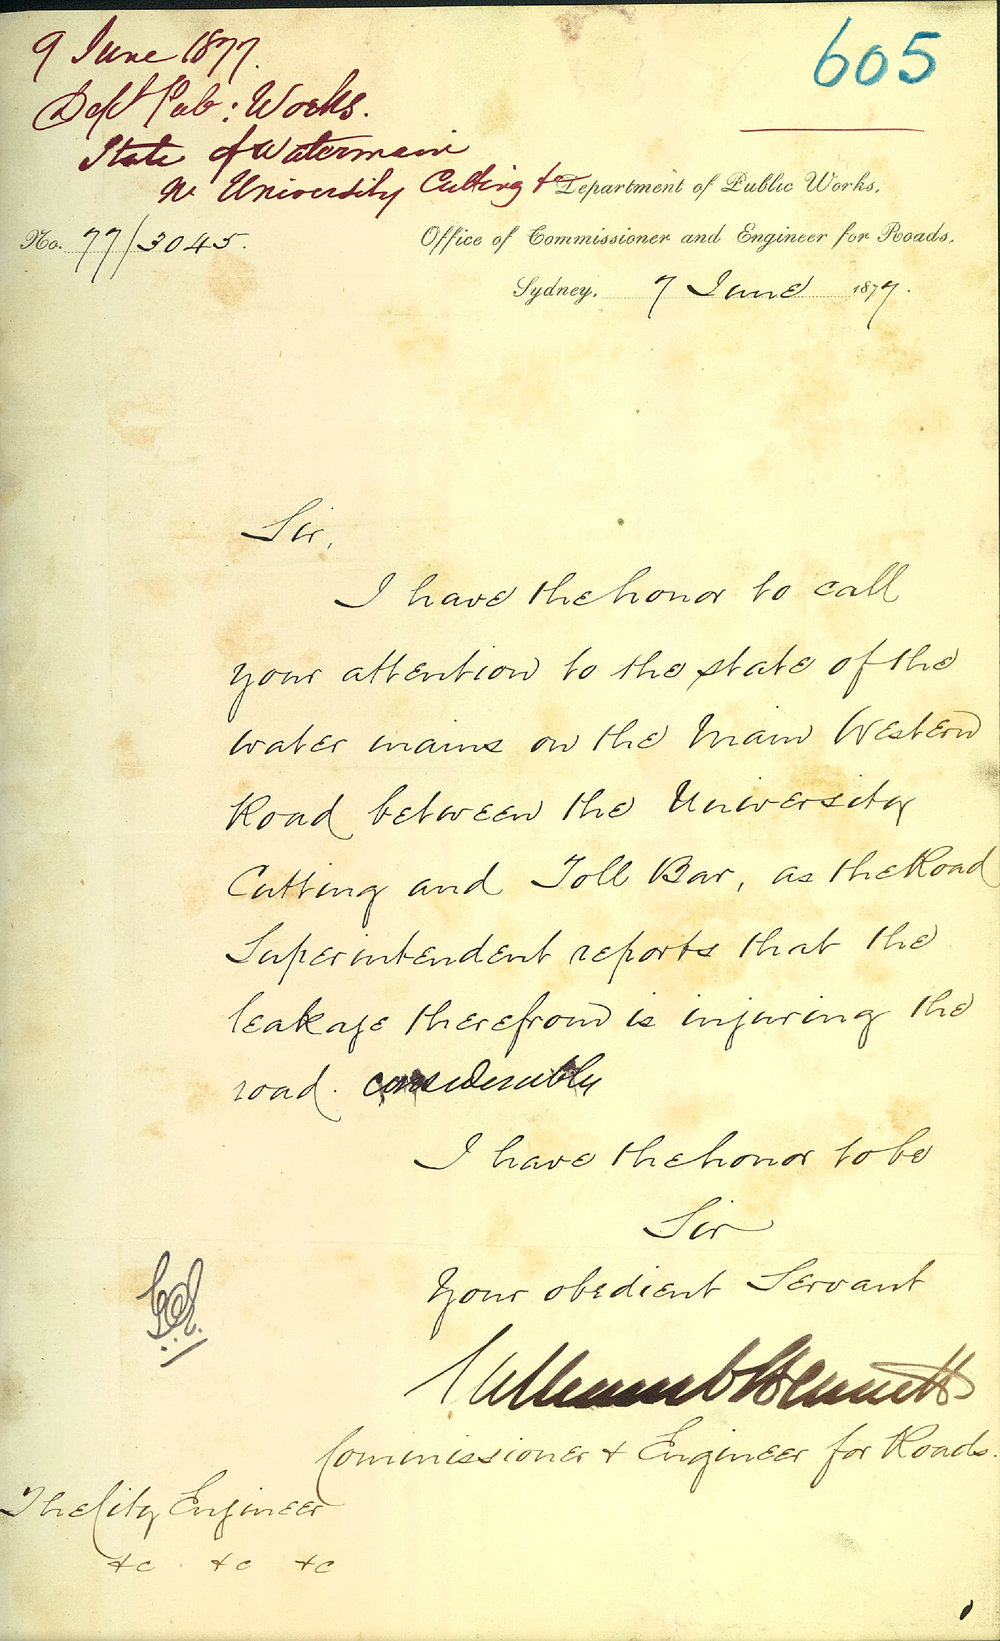 9 June 1877.
605
Dept Pub: Works.
State of Watermain
Nr University Cutting &c
Department of Public Works,
No. 77/3045.
Office of Commissioner and Engineer for Roads.
Sydney, 7 June 1877.
Sir,
I have the honor to call
your attention to the state of the
water mains on the Main Western
Road between the University
Cutting and Toll Bar, as the Road
Superintendent reports that the
leakage therefrom is injuring the
road. considerably
I have the honor to be
Sir
Your obedient Servant
William C Bennett
Commissioner & Engineer for Roads.
The City Engineer
&c &c &c